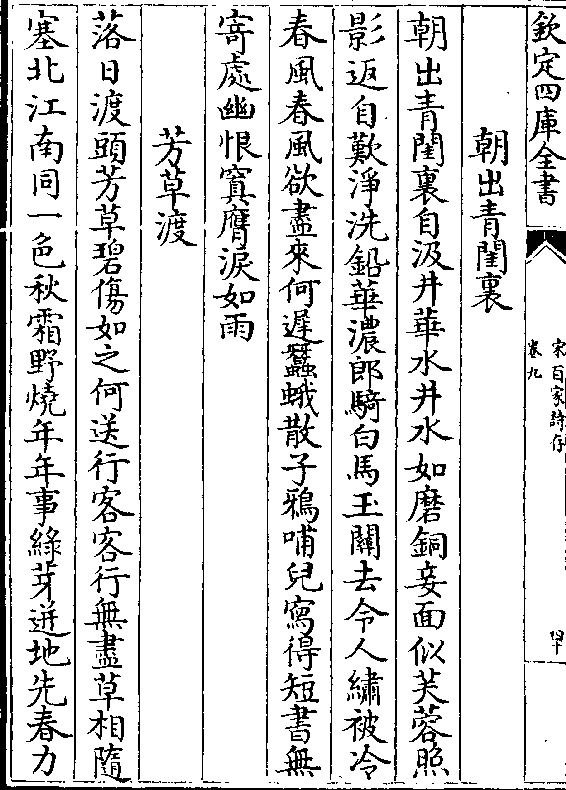 欽定四庫全書
宋百家詩存
卷九
朝出青閨裏
朝出青閨裏自汲井華水井水如磨銅妾面似芙蓉照
影返自歎淨洗鉛華濃郎騎白馬玉關去令人繡被冷
春風春風欲盡來何遲蠶蛾散子鴉哺兒寫得短書無
寄處幽恨寘膺淚如雨
芳草渡
落日渡頭芳草碧傷如之何送行客客行無盡草相隨
塞北江南同一色秋霜野燒年年事綠芽迸地先春力